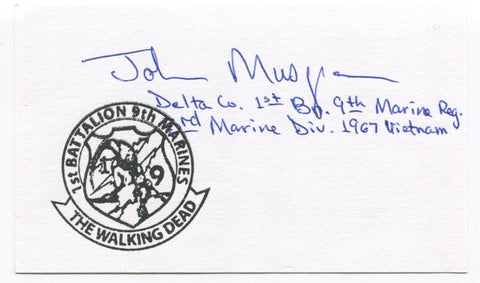 John Musgrave
Delta Co. 1st Bn. 9th Marine Reg.
rd Marine Div. 1967 Vietnam
1st BATTALION 9th MARINES
1 9
THE WALKING DEAD